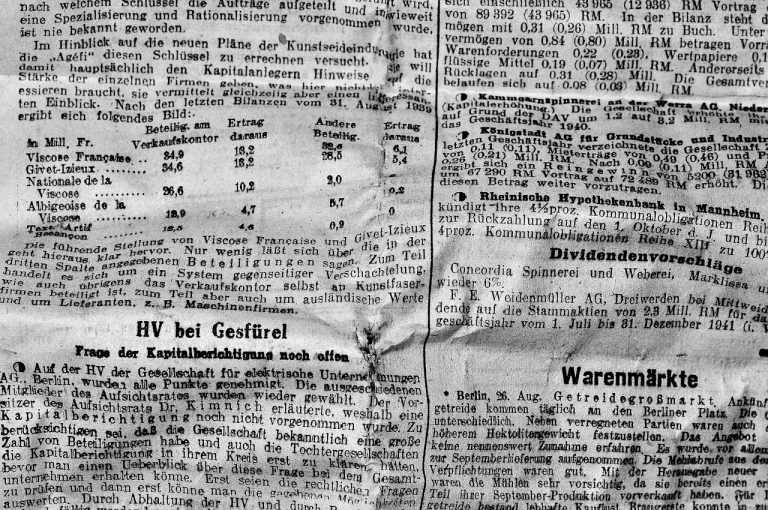 nach welchem Schlüssel die Aufträge aufgeteilt und inwieweit
eine Spezialisierung und Rationalisierung vorgenommen wurde,
ist nie bekannt geworden.
Im Hinblick auf die neuen Pläne der Kunstseideindustrie hat
die „Agéfi" diesen Schlüssel zu errechnen versucht. Sie will
damit hauptsächlich den Kapitalanlegern Hinweise auf die
Stärke der einzelnen Firmen geben, was hier nicht
essieren braucht, sie vermittelt gleichzeitig aber einen interessan-
ten Einblick. Nach den letzten Bilanzen vom 31. August 1939
ergibt sich folgendes Bild:
Beteilig. am Ertrag Andere Ertrag
in Mill. Fr. Verkaufskontor daraus Beteilig. daraus
Viscose Française .. 34,9 16,2 6,1
Givet-Izieux ....... 34,6 16,2 26,5 5,4
Nationale de la
Viscose ........ 26,6 10,2 2,0 0,2
Albigeoise de la
Viscose ........ 12,9 4,7 5,7
Text. Artif
Besançon ........ 12,5 4,6 0,9
Die führende Stellung von Viscose Française und Givet-Izieux
geht hieraus klar hervor. Nur wenig läßt sich über die in der
dritten Spalte angegebenen Beteiligungen sagen. Zum Teil
handelt es sich um ein System gegenseitiger Verschachtelung,
wie auch übrigens das Verkaufskontor selbst an Kunstfaser-
firmen beteiligt ist, zum Teil aber auch um ausländische Werte
und um Lieferanten, z. B. Maschinenfirmen.
HV bei Gesfürel
Frage der Kapitalberichtigung noch offen
Auf der HV der Gesellschaft für elektrische Unternehmungen
AG., Berlin, wurden alle Punkte genehmigt. Die ausgeschiedenen
Mitglieder des Aufsichtsrates wurden wieder gewählt. Der Vor-
sitzer des Aufsichtsrats Dr. Kimnich erläuterte, weshalb eine
Kapitalberichtigung noch nicht vorgenommen wurde. Zu
berücksichtigen sei, daß die Gesellschaft bekanntlich eine große
Zahl von Beteiligungen habe und auch die Tochtergesellschaften
die Kapitalberichtigung in ihrem Kreis erst zu klären hätten,
bevor man einen Ueberblick über diese Frage bei dem Gesamt-
unternehmen erhalten könne. Erst seien die rechtlichen Fragen
zu prüfen und dann erst könne man die gegebenen Möglichkeiten
auswerten. Durch Abhaltung der HV und durch
sich einschließlich 43 965 (12 936) RM Vortrag
von 89 392 (43 965) RM. In der Bilanz steht d
mögen mit 0,31 (0,26) Mill. RM zu Buch. Unter
vermögen von 0,84 (0,80) Mill. RM betragen Vorrä
Warenforderungen 0,22 (0,23), Wertpapiere 0,1
flüssige Mittel 0,19 (0,07) Mill. RM. Andererseits
Rücklagen auf 0,31 (0,28) Mill. RM. Die Gesamtver
belaufen sich auf 0,08 (0,03) Mill. RM.
Kammgarnspinnerei an der Werra AG, Nieder
(Kapitalerhöhung.) Die Gesellschaft erhöhte ihr
auf Grund der DAV um 1,2 auf 3,2 Mill. RM mit
das Geschäftsjahr 1940.
Königstadt AG für Grundstücke und Industrie
letzten Geschäftsjahr verzeichnete die Gesellschaft
von 0,11 (0,11), Mieterträge von 0,49 (0,46) und P
0,26 (0,21) Mill. RM. Nach 0,09 (0,11) Mill. RM A
ergibt sich ein Reingewinn von 5200 (31 362)
um 67 290 RM Vortrag auf 72 489 RM erhöht. Die
diesen Betrag weiter vorzutragen.
Rheinische Hypothekenbank in Mannheim.
kündigt ihre 4½proz. Kommunalobligationen Reih
zur Rückzahlung auf den 1. Oktober d. J. und bi
4proz. Kommunalobligationen Reihe XIII zu 100%
Dividendenvorschläge
Concordia Spinnerei und Weberei, Marklissa
wieder 6%.
F. E. Weidenmüller AG, Dreiwerden bei Mittweid
dende auf die Stammaktien von 2,3 Mill. RM für da
geschäftsjahr vom 1. Juli bis 31. Dezember 1941 (i. V
Warenmärkte
* Berlin, 26. Aug. Getreidegroßmarkt Ankünf
getreide kommen täglich an den Berliner Platz. Die
unterschiedlich. Neben verregneten Partien waren auch
höherem Hektolitergewicht festzustellen. Das Angebot
keine nennenswert Zunahme erfahren. Es wurde vor allem
zur Septemberlieferung aufgenommen. Die Mehlabrufe aus den
Verpflichtungen waren gut. Mit der Herausgabe neuer
waren die Mühlen sehr vorsichtig, da sie bereits einen er
Teil ihrer September-Produktion vorverkauft haben. Für I
getreide bestand lebhafte Kauflust Braugerste konnte in